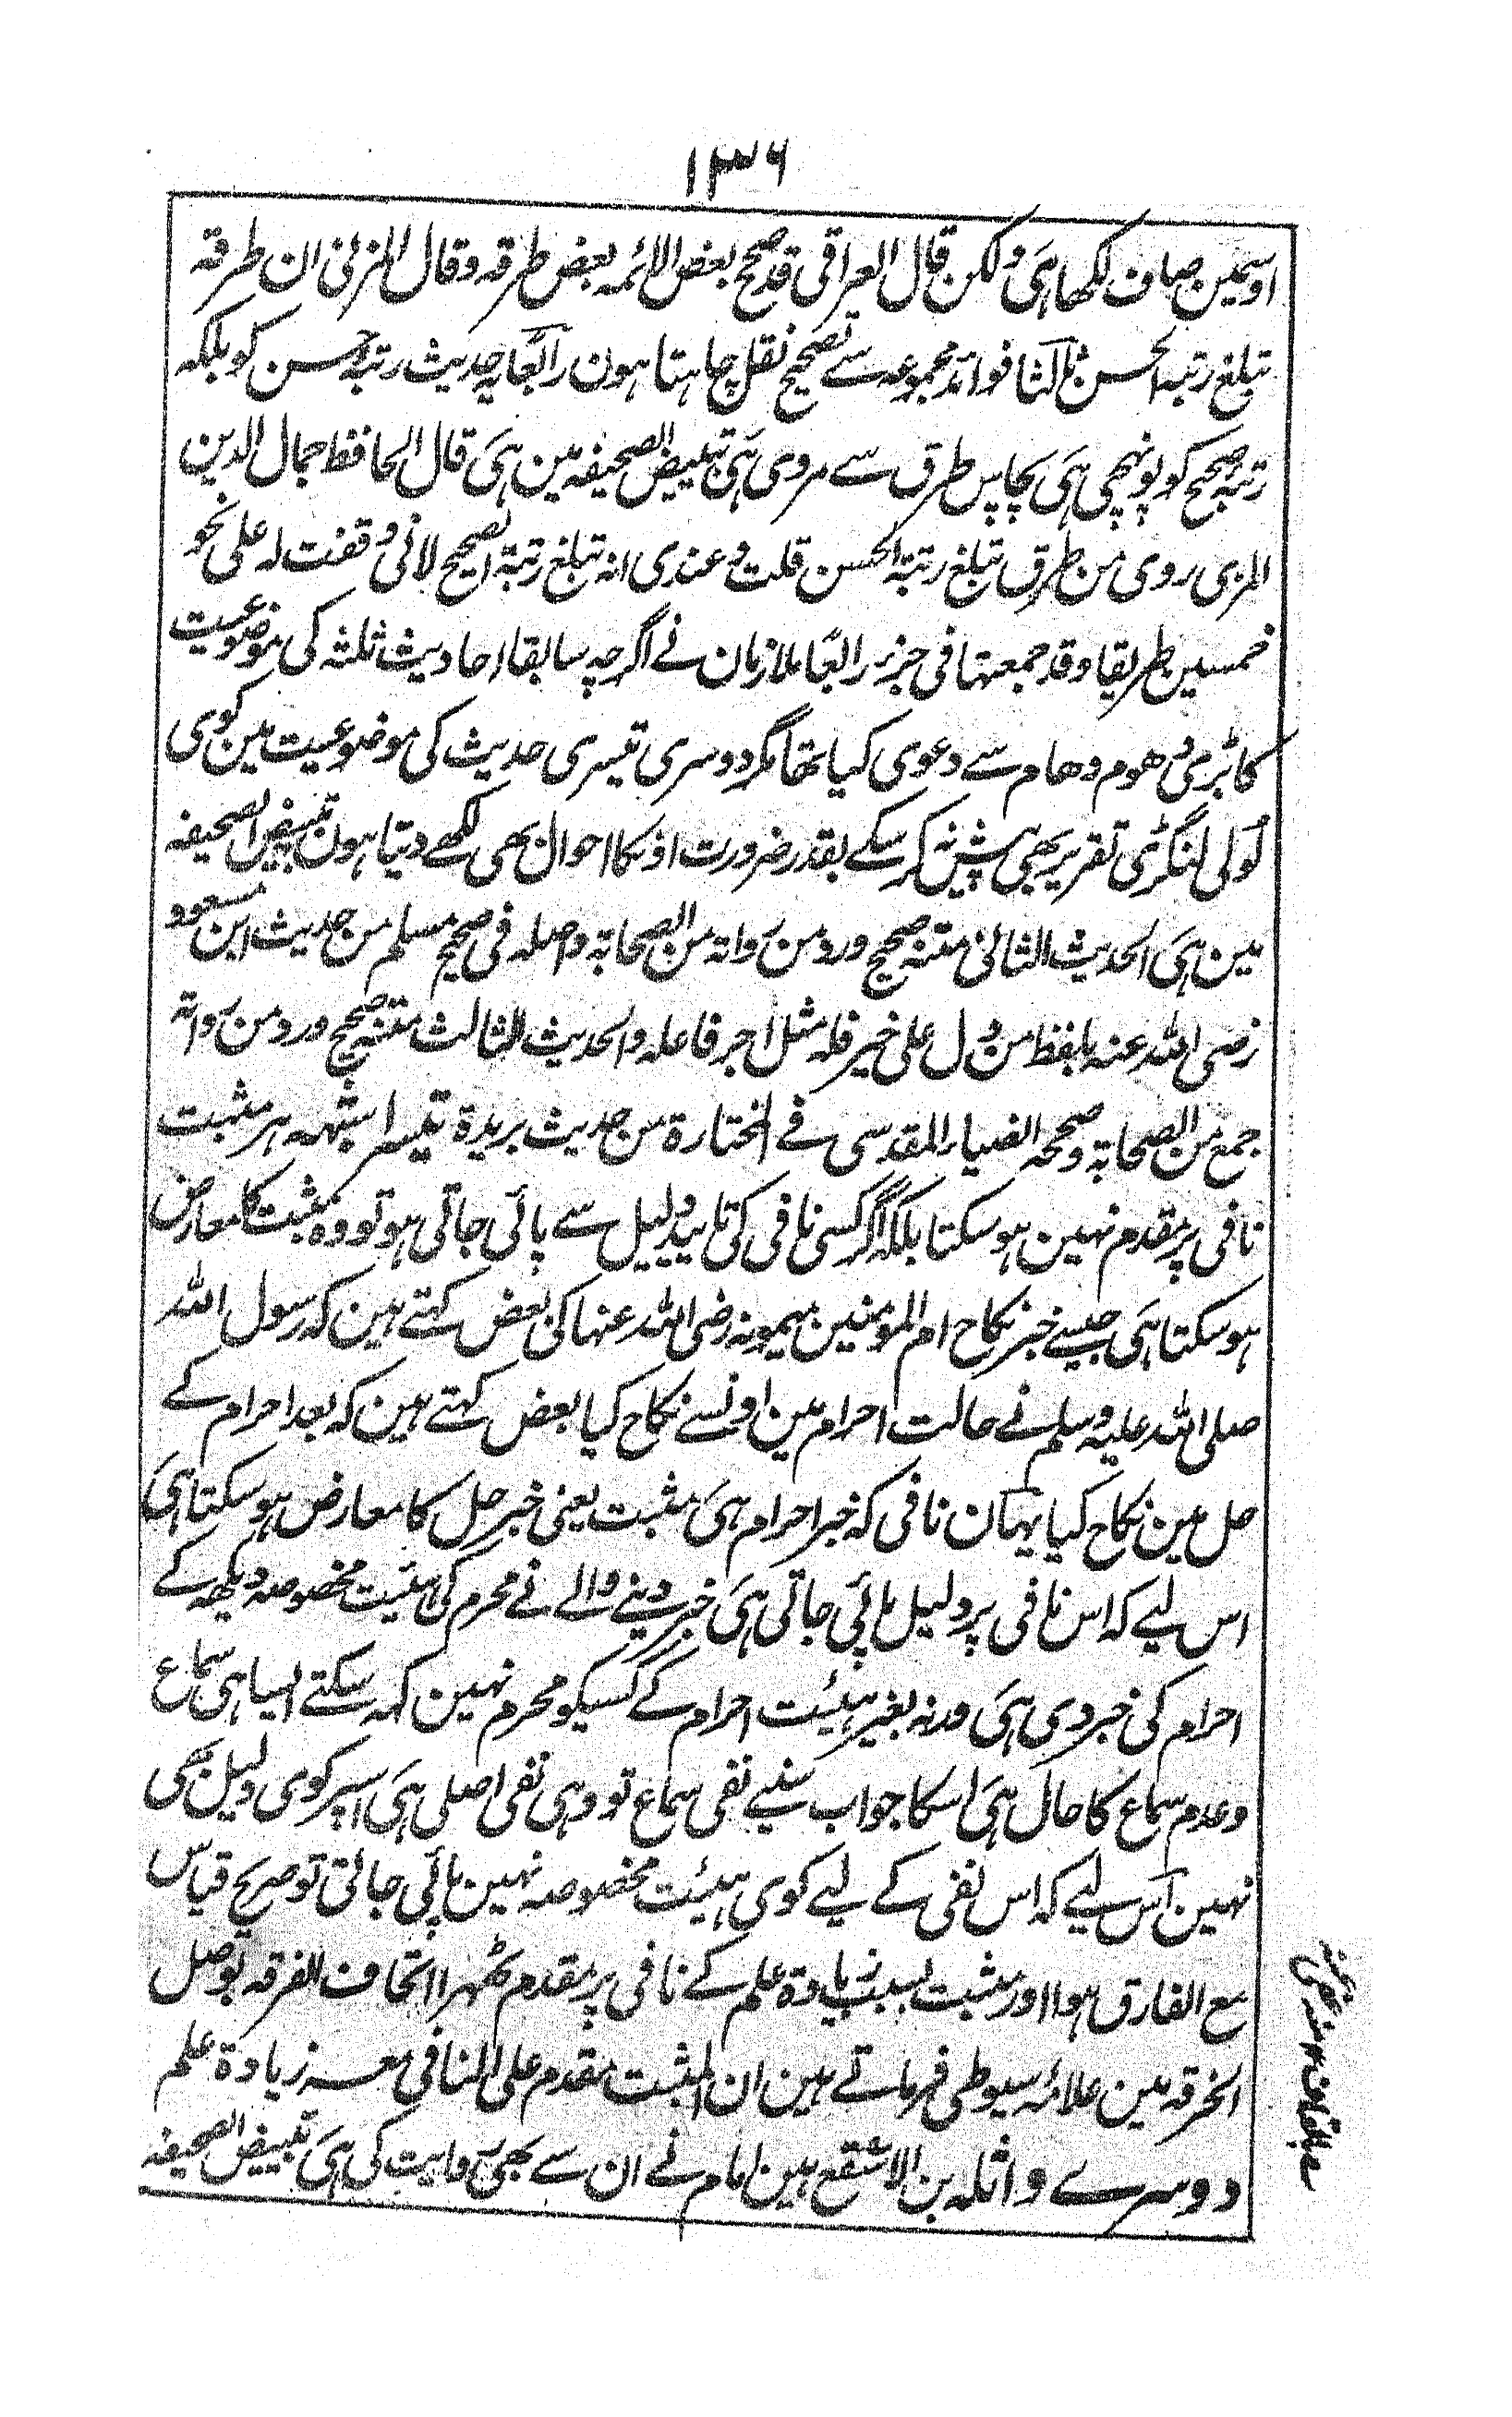 ۱۳۶
اوسمین صاف لکھا ہی ولکن قال العراقی قد صحح بعض الائمہ بعض طرقہ وقال المزنی ان طرقہ
تبلغ رتبہ الحسن ثالثا فوائد مجموعہ سے تصحیح نقل چاہتا ہون رابعًا یہ حدیث رتبہ حسن کو بلکہ
رتبہ صحیح کو پونہچی ہی پچاس طرق سے مروی ہی تبییض الصحیفہ مین ہی قال الحافظ جمال الدین
المزی روی من طرق تبلغ رتبۃ الحسن قلت وعندی انہ تبلغ رتبۃ الصحیح لانی وقفت لہ علی نحو
خمسین طریقا وقد جمعتہا فی جزء رابعًا ملازمان نے اگرچہ سابقا احادیث ثلثہ کی موضوعیت
کا بڑی دھوم دھام سے دعوی کیا تھا مگر دوسری تیسری حدیث کی موضوعیت مین کوی
لولی لنگڑی تقریر بھی پیش نہ کر سکے بقدر ضرورت اونکا احوال بھی لکھے دیتا ہون تبییض الصحیفہ
مین ہی الحدیث الثانی متنہ صحیح ورد من رواتہ من الصحابۃ واصلہ فی صحیح مسلم من حدیث ابن مسعود
رضی اللہ عنہ بلفظ من دل علی خیر فلہ مثل اجر فاعلہ والحدیث الثالث متنہ صحیح ورد من رواتہ
جمع من الصحابۃ وصححہ الضیاء المقدسی فے المختارۃ من حدیث بریدۃ تیسرا شبہہ ہر مثبت
نافی پر مقدم نہین ہو سکتا بلکہ اگر کسی نافی کی تایید دلیل سے پائی جاتی ہو تو وہ مثبت کا معارض
ہو سکتا ہی جیسے خبر نکاح ام المؤمنین میمونہ رضی اللہ عنہا کی بعض کہتے ہین کہ رسول اللہ
صلی اللہ علیہ وسلم نے حالت احرام مین اونسے نکاح کیا بعض کہتے ہین کہ بعد احرام کے
حل مین نکاح کیا یہان نافی کہ خبر احرام ہی مثبت یعنی خبر حل کا معارض ہو سکتا ہی
اس لیے کہ اس نافی پر دلیل پائی جاتی ہی خبر دینے والے نے محرم کی ہیئت مخصوصہ دیکھ کے
احرام کی خبر دی ہی ورنہ بغیر ہیئت احرام کے کسیکو محرم نہین کہہ سکتے ایسا ہی سماع
وعدم سماع کا حال ہی اسکا جواب سنیے نفی سماع تو وہی نفی اصلی ہی اسپر کوی دلیل بھی
نہین اس لیے کہ اس نفی کے لیے کوی ہیئت مخصوصہ نہین پائی جاتی تو صریح قیاس
مع الفارق ہوا اور مثبت بسبب زیادۃ علم کے نافی پر مقدم ٹھہرا اتحاف الفرقہ بوصل
الخرقہ مین علامہ سیوطی فرماتے ہین ان المثبت مقدم علی النافی معہ زیادۃ علم
دوسرے واثلہ بن الاسقع ہین امام نے ان سے بھی روایت کی ہی تبییض الصحیفہ